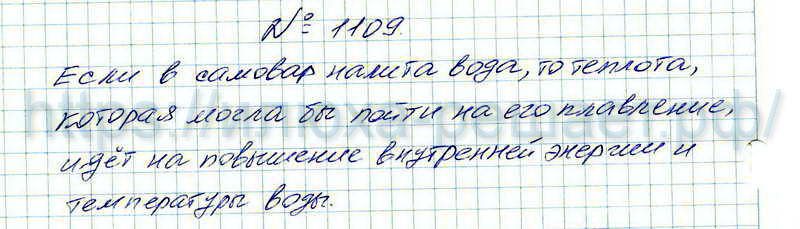 № 1109.
Если в самовар налита вода, то теплота,
которая могла бы пойти на его плавление,
идёт на повышение внутренней энергии и
температуры воды.